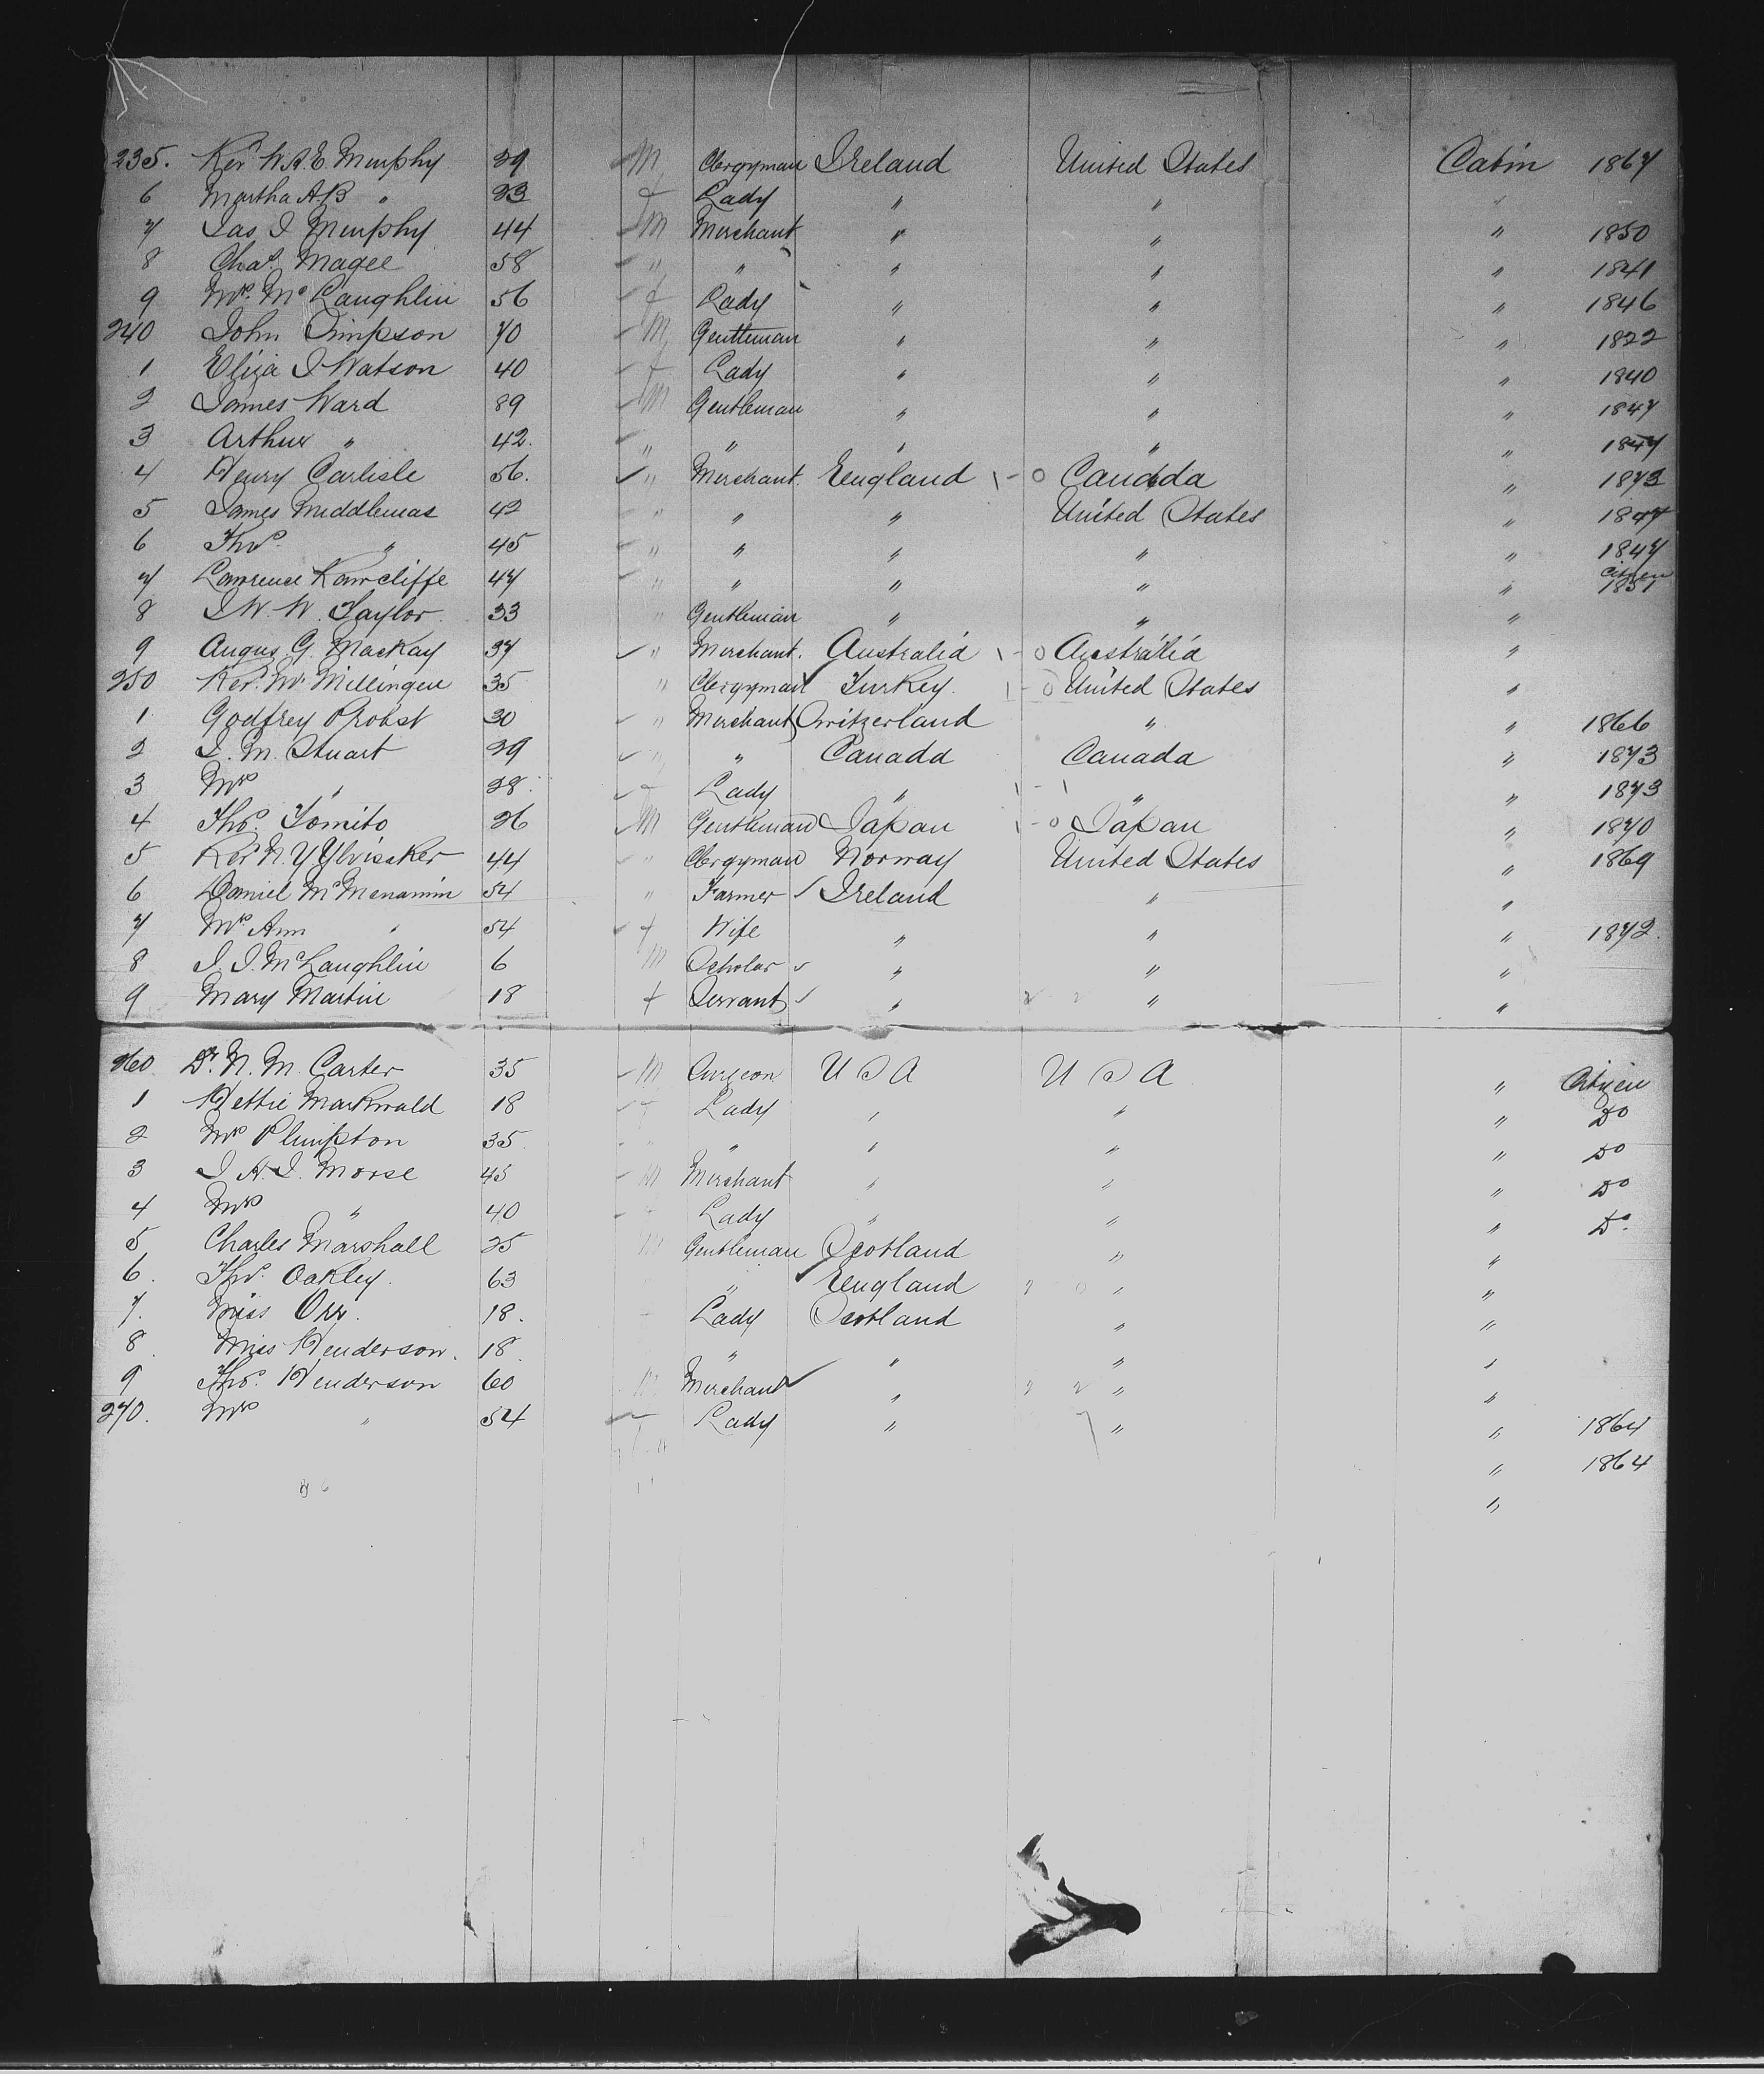 235. Revd W. A. E. Murphy 29 M Clergyman Ireland United States Cabin 1867
6 Martha A B " 23 f Lady " " "
7 Jas J Murphy 44 M Merchant " " " 1850
8 Chas Magee 58 " " " " " 1841
9 Mrs McLaughlin 56 f Lady " " " 1846
240 John Simpson 70 M Gentleman " " " 1822
1 Eliza J Watson 40 f Lady " " " 1840
2 James Ward 89 M Gentleman " " " 1847
3 Arthur " 42. " " " " " 1847
4 Henry Carlisle 56. " Merchant. England Canada " 1873
5 James Middlemas 42 " " " United States " 1847
6 Thos " 45 " " " " " 1847
7 Lawrence Rawcliffe 47 " " " " " Citizen 1851
8 J. W. W. Taylor 33 " Gentleman " " "
9 Angus. G. MacKay 37 " Merchant. Australia Australia "
250 Revd. W. Millingen 35 " Clergyman Turkey. United States "
1 Godfrey Probst 30 " Merchant Switzerland " " 1866
2 J. M. Stuart 29 " " Canada Canada " 1873
3 Mrs " 28 f Lady " " " 1873
4 Thos. Tomito 26 M Gentleman Japan Japan " 1870
5 Revd N. Y Ylvisaker 44 " Clergyman Norway United States " 1869
6 Daniel McMenamin 54 " Farmer Ireland " "
7 Mrs Ann " 54 f Wife " " " 1872.
8 J. J. McLaughlin 6 M Scholar " " "
9 Mary Martin 18 f Servant " " "
260 Dr. N. M. Carter 35 M Surgeon U S A U S A " Citizen
1 Hettie Markwald 18 f Lady " " " Do
2 Mrs Plimpton 35 " " " " " Do
3 J. H. J. Morse 45 M Merchant " " " Do
4 Mrs " 40 f Lady " " " Do.
5 Charles Marshall 25 M Gentleman Scotland " "
6. Thos. Oakley. 63 " England " "
7. Miss Orr. 18. Lady Scotland " "
8 Miss Henderson. 18 " " " "
9 Thos. Henderson 60 M Merchant " " "
270. Mrs " 54 Lady " " " 1864
" 1864
"